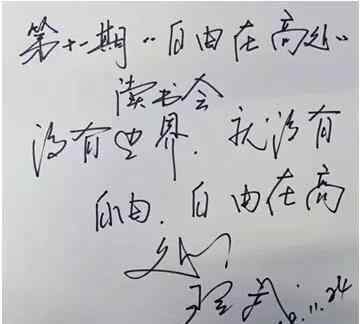 第十一期“自由在高处”
读书会
没有世界．就没有
自由．自由在高
处
11.24